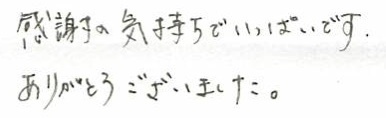 感謝の気持ちでいっぱいです.
ありがとうございました。